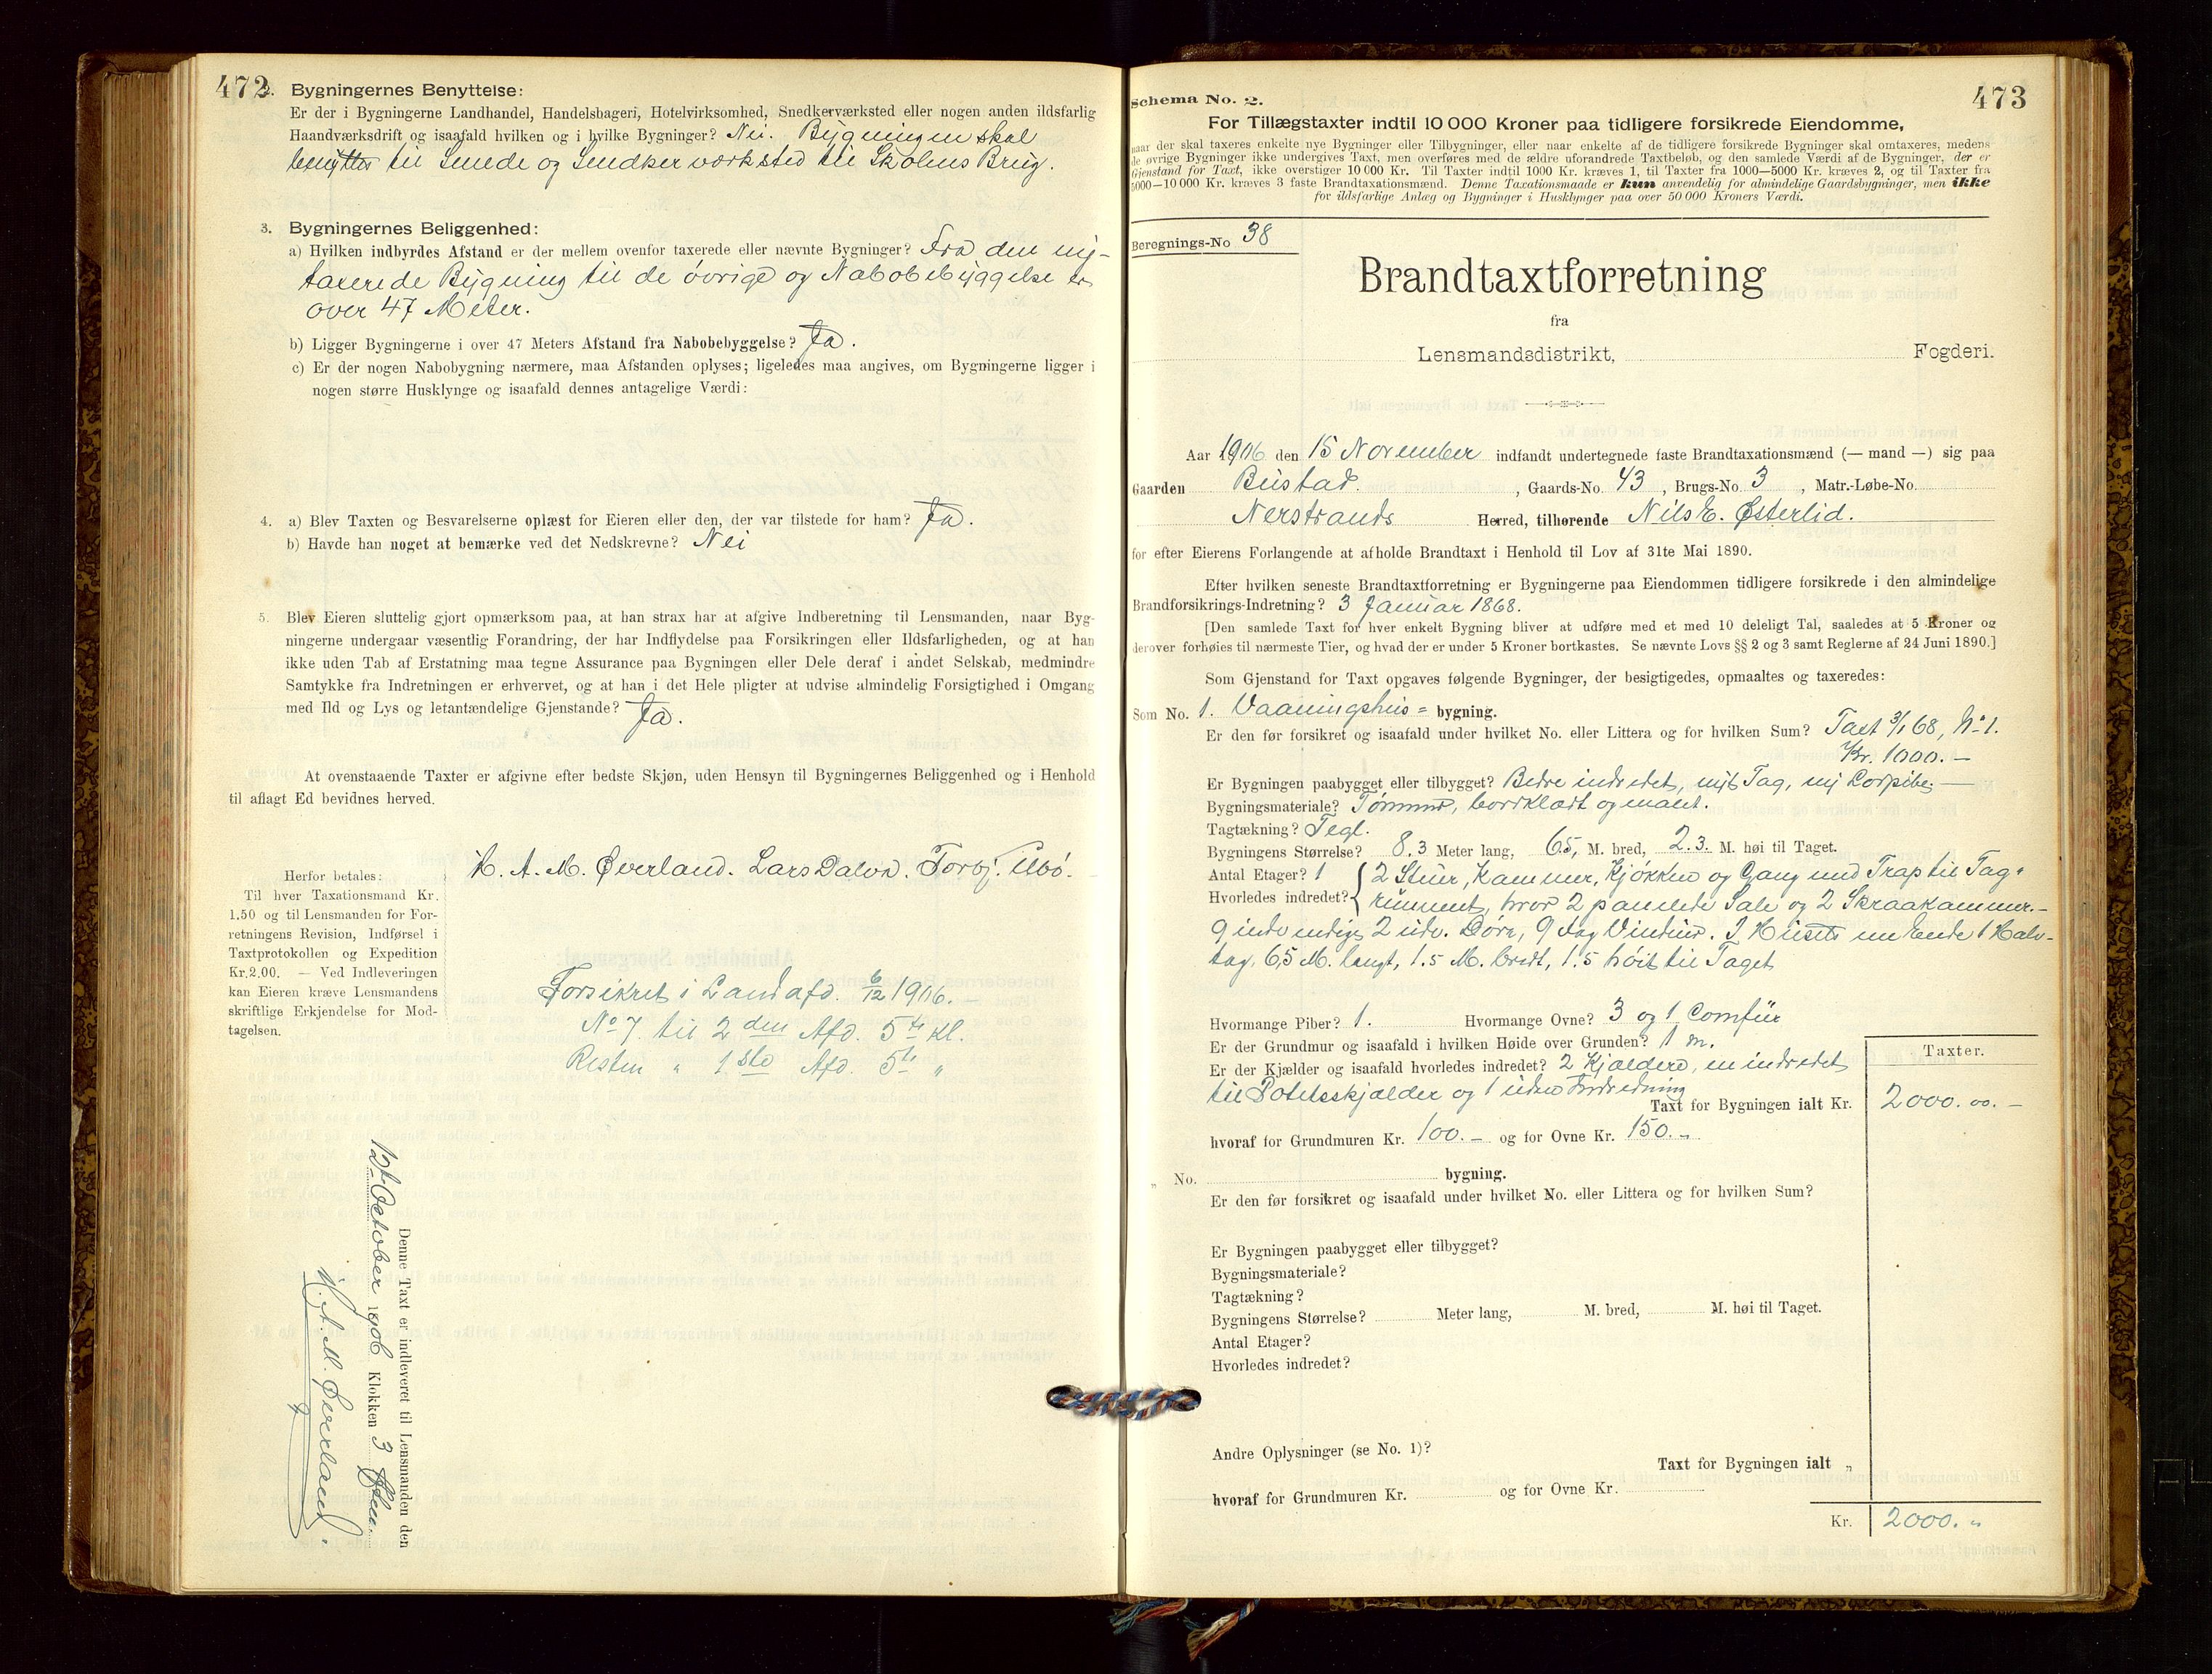 472
2. Bygningernes Benyttelse:
Er der i Bygningerne Landhandel, Handelsbageri, Hotelvirksomhed, Snedkerværksted eller nogen anden ildsfarlig
Haandværksdrift og isaafald hvilken og i hvilke Bygninger? Nei. Bygningen skal
benyttes til Smede og Snedkerværksted til Skolens Brug.
3. Bygningernes Beliggenhed:
a) Hvilken indbyrdes Afstand er der mellem ovenfor taxerede eller nævnte Bygninger? Fra den ny-
taxerede Bygning til de øvrige og Nabobebyggelse er
over 47 Meter.
b) Ligger Bygningerne i over 47 Meters Afstand fra Nabobebyggelse? Ja.
c) Er der nogen Nabobygning nærmere, maa Afstanden oplyses; ligeledes maa angives, om Bygningerne ligger i
nogen større Husklynge og isaafald dennes antagelige Værdi:
4. a) Blev Taxten og Besvarelserne oplæst for Eieren eller den, der var tilstede for ham? Ja.
b) Havde han noget at bemærke ved det Nedskrevne? Nei
5. Blev Eieren sluttelig gjort opmærksom paa, at han strax har at afgive Indberetning til Lensmanden, naar Byg-
ningerne undergaar væsentlig Forandring, der har Indflydelse paa Forsikringen eller Ildsfarligheden, og at han
ikke uden Tab af Erstatning maa tegne Assurance paa Bygningen eller Dele deraf i andet Selskab, medmindre
Samtykke fra Indretningen er erhvervet, og at han i det Hele pligter at udvise almindelig Forsigtighed i Omgang
med Ild og Lys og letantændelige Gjenstande? Ja.
At ovenstaaende Taxter er afgivne efter bedste Skjøn, uden Hensyn til Bygningernes Beliggenhed og i Henhold
til aflagt Ed bevidnes herved.
H. A. M. Øverland. Lars Dalva.
Herfor betales:
Til hver Taxationsmand Kr.
1.50 og til Lensmanden for For-
retningens Revision, Indførsel i
Taxtprotokollen og Expedition
Kr. 2.00. — Ved Indleveringen
kan Eieren kræve Lensmandens
skriftlige Erkjendelse for Mod-
tagelsen.
Forsikret i Landafd. 6/12 1906. —
No 7. til 2den Afd. 5te Kl.
Resten " 1ste Afd. 5te "
Denne Taxt er indleveret til Lensmanden den
12te October 1906 Klokken 3 Eftm.
H. A. M. Øverland.
473
Schema No. 2.
For Tillægstaxter indtil 10 000 Kroner paa tidligere forsikrede Eiendomme,
naar der skal taxeres enkelte nye Bygninger eller Tilbygninger, eller naar enkelte af de tidligere forsikrede Bygninger skal omtaxeres, medens
de øvrige Bygninger ikke undergives Taxt, men overføres med de ældre uforandrede Taxtbeløb, og den samlede Værdi af de Bygninger, der er
Gjenstand for Taxt, ikke overstiger 10 000 Kr. Til Taxter indtil 1000 Kr. kræves 1, til Taxter fra 1000—5000 Kr. kræves 2, og til Taxter fra
5000—10 000 Kr. kræves 3 faste Brandtaxationsmænd. Denne Taxationsmaade er kun anvendelig for almindelige Gaardsbygninger, men ikke
for ildsfarlige Anlæg og Bygninger i Husklynger paa over 50 000 Kroners Værdi.
Beregnings-No 38
Brandtaxtforretning
fra
Lensmandsdistrikt, Fogderi.
Aar 1906 den 15 November indfandt undertegnede faste Brandtaxationsmænd (— mand —) sig paa
Gaarden Bustad. , Gaards-No. 43 , Brugs-No. 3 , Matr.-Løbe-No.
Nerstrands Herred, tilhørende Nils E. Østerlid.
for efter Eierens Forlangende at afholde Brandtaxt i Henhold til Lov af 31te Mai 1890.
Efter hvilken seneste Brandtaxtforretning er Bygningerne paa Eiendommen tidligere forsikrede i den almindelige
Brandforsikrings-Indretning? 3 Januar 1868.
[Den samlede Taxt for hver enkelt Bygning bliver at udføre med et med 10 deleligt Tal, saaledes at 5 Kroner og
derover forhøies til nærmeste Tier, og hvad der er under 5 Kroner bortkastes. Se nævnte Lovs §§ 2 og 3 samt Reglerne af 24 Juni 1890.]
Som Gjenstand for Taxt opgaves følgende Bygninger, der besigtigedes, opmaaltes og taxeredes:
Som No. 1. Vaaningshus = bygning.
Er den før forsikret og isaafald under hvilket No. eller Littera og for hvilken Sum? Taxt 3/1 68, No 1.
Kr. 1000. —
Er Bygningen paabygget eller tilbygget? Bedre indredet, nyt Tag, ny Torpibe. —
Bygningsmateriale? Tømmer, bordklædt og malet.
Tagtækning? Tegl.
Bygningens Størrelse? 8.3 Meter lang, 6.5, M. bred, 2.3. M. høi til Taget.
Antal Etager? 1
Hvorledes indredet? 2 Stuer, Kammer, Kjøkken og Gang med Trap til Tag-
rummet, hvor 2 panelede Sale og 2 Skraakammer. —
9 indvendige, 2 udv. Døre, 9 fag Vinduer. I Husets ene Ende 1 Halv-
tag, 6,5 M. langt, 1.5 M. bredt, 1.5 høit til Taget
Hvormange Piber? 1. Hvormange Ovne? 3 og 1 Comfür
Er der Grundmur og isaafald i hvilken Høide over Grunden? 1 m.
Er der Kjælder og isaafald hvorledes indredet? 2 Kjældere, en indredet
til Potetskjælder og 1 uden Indredning
Taxter.
Taxt for Bygningen ialt Kr. 2000.00. —
hvoraf for Grundmuren Kr. 100. — og for Ovne Kr. 150. „
„ No. bygning.
Er den før forsikret og isaafald under hvilket No. eller Littera og for hvilken Sum?
Er Bygningen paabygget eller tilbygget?
Bygningsmateriale?
Tagtækning?
Bygningens Størrelse? Meter lang, M. bred, M. høi til Taget.
Antal Etager?
Hvorledes indredet?
Andre Oplysninger (se No. 1)?
Taxt for Bygningen ialt „
hvoraf for Grundmuren Kr. og for Ovne Kr.
Kr. 2000. „